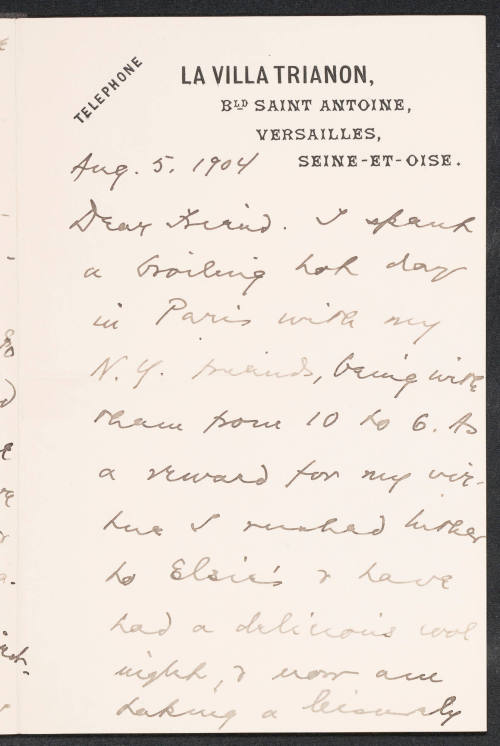 TELEPHONE
LA VILLA TRIANON,
BLD SAINT ANTOINE,
VERSAILLES,
SEINE-ET-OISE.
Aug. 5. 1904
Dear Friend. I spent
a broiling hot day
in Paris with my
N.Y. friends, being with
them from 10 to 6. As
a reward for my vir-
tue I rushed hither
to Elsie's & have
had a delicious cool
night, & now am
taking a leisurely